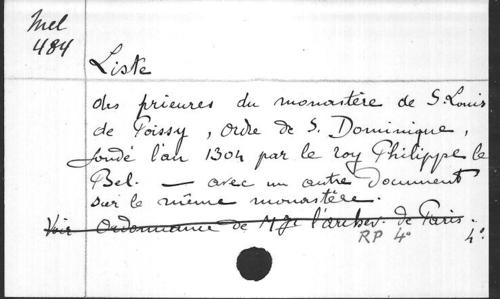 Mel
484
Liste
des prieures du monastère de S. Louis
de Poissy, ordre de S. Dominique,
fondé l'an 1304 par le roy Philippe le
Bel. — avec un autre document
sur le même monastère.
Voir Ordonnance de Mgr l'archev. de Paris.
RP 4° 4°.